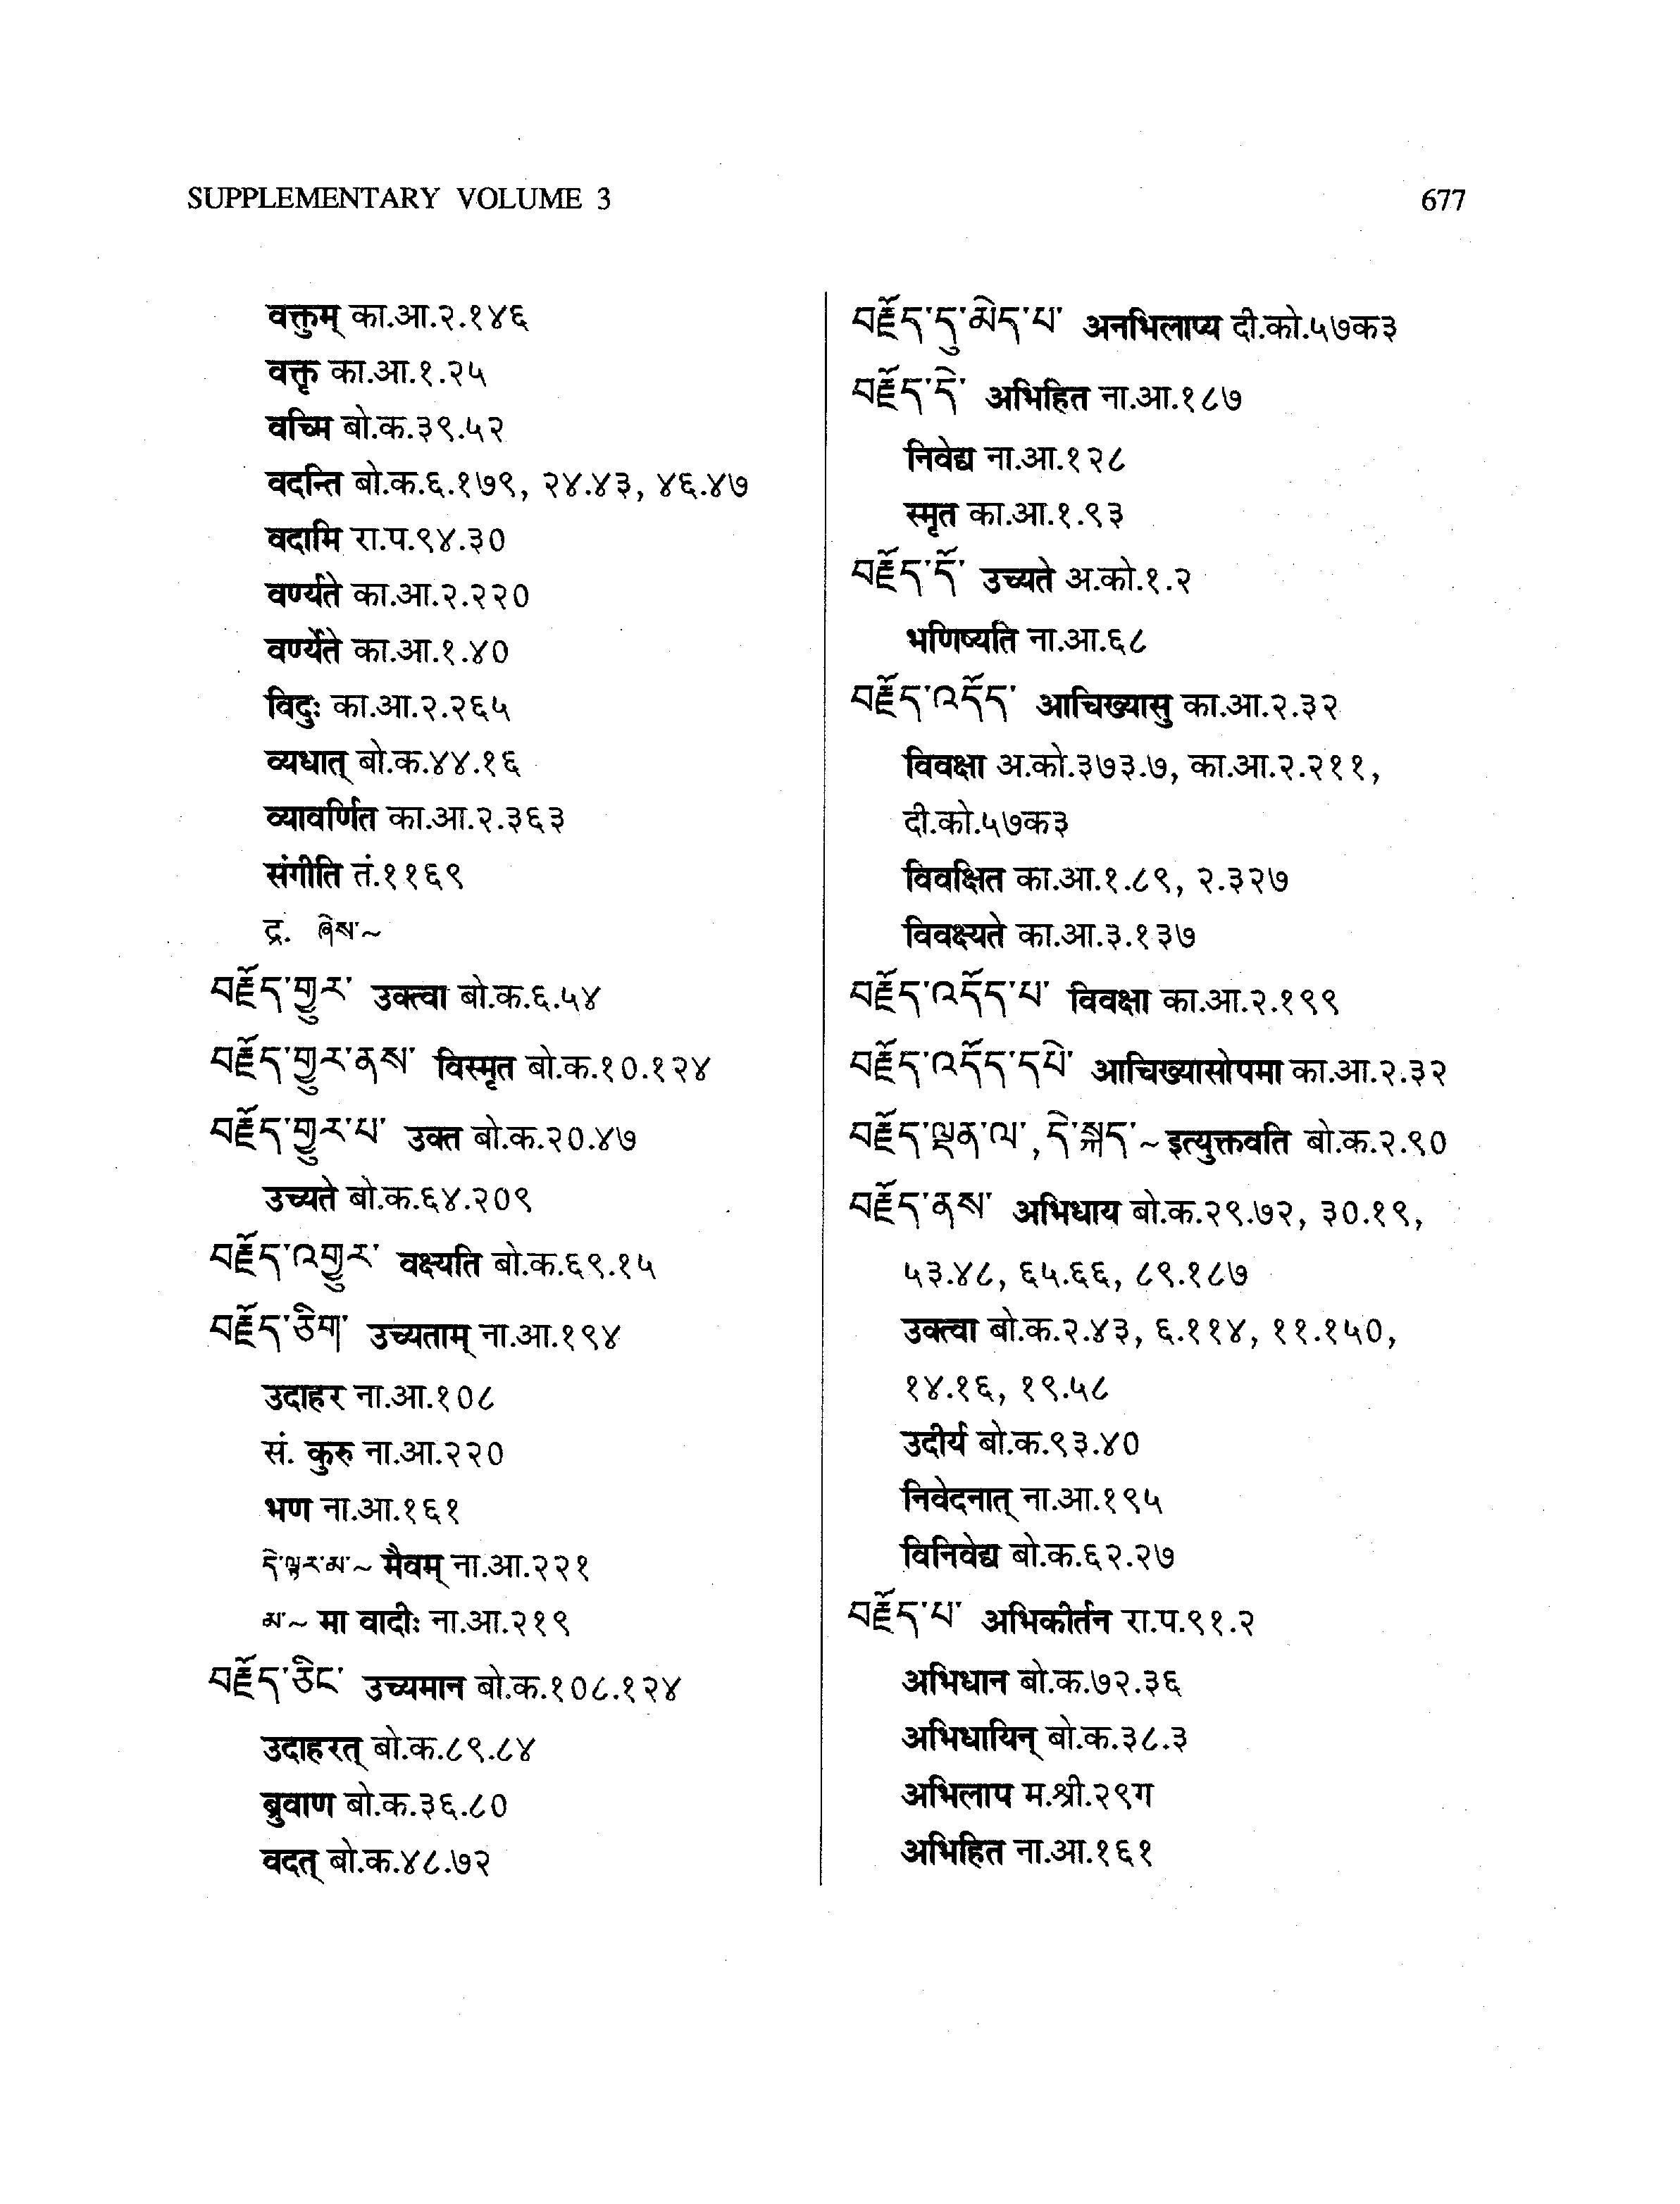 SUPPLEMENTARY VOLUME 3
677
वक्तुम् का.आ.२.१४६
वक्तृ का.आ.१.२५
वच्मि बो.क.३९.५२
वदन्ति बो.क.६.१७९, २४.४३, ४६.४७
वदामि रा.प.९४.३०
वर्ण्यते का.आ.२.२२०
वर्ण्येते का.आ.१.४०
विदुः का.आ.२.२६५
व्यधात् बो.क.४४.१६
व्यावर्णित का.आ.२.३६३
संगीति तं.११६९
द्र. ཞེས་~
བརྗོད་གྱུར་ उक्त्वा बो.क.६.५४
བརྗོད་གྱུར་ནས་ विस्मृत बो.क.१०.१२४
བརྗོད་གྱུར་པ་ उक्त बो.क.२०.४७
उच्यते बो.क.६४.२०९
བརྗོད་འགྱུར་ वक्ष्यति बो.क.६९.१५
བརྗོད་ཅིག་ उच्यताम् ना.आ.१९४
उदाहर ना.आ.१०८
सं. कुरु ना.आ.२२०
भण ना.आ.१६१
དེ་ལྟར་མ་~ मैवम् ना.आ.२२१
མ་~ मा वादीः ना.आ.२१९
བརྗོད་ཅིང་ उच्यमान बो.क.१०८.१२४
उदाहरत् बो.क.८९.८४
ब्रुवाण बो.क.३६.८०
वदत् बो.क.४८.७२
བརྗོད་དུ་མེད་པ་ अनभिलाप्य दी.को.५७क३
བརྗོད་དེ་ अभिहित ना.आ.१८७
निवेद्य ना.आ.१२८
स्मृत का.आ.१.९३
བརྗོད་དོ་ उच्यते अ.को.१.२
भणिष्यति ना.आ.६८
བརྗོད་འདོད་ आचिख्यासु का.आ.२.३२
विवक्षा अ.को.३७३.७, का.आ.२.२११,
दी.को.५७क३
विवक्षित का.आ.१.८९, २.३२७
विवक्ष्यते का.आ.३.१३७
བརྗོད་འདོད་པ་ विवक्षा का.आ.२.१९९
བརྗོད་འདོད་དཔེ་ आचिख्यासोपमा का.आ.२.३२
བརྗོད་ལྡན་ལ་, དེ་སྐད་~ इत्युक्तवति बो.क.२.९०
བརྗོད་ནས་ अभिधाय बो.क.२९.७२, ३०.१९,
५३.४८, ६५.६६, ८९.१८७
उक्त्वा बो.क.२.४३, ६.११४, ११.१५०,
१४.१६, १९.५८
उदीर्य बो.क.९३.४०
निवेदनात् ना.आ.१९५
विनिवेद्य बो.क.६२.२७
བརྗོད་པ་ अभिकीर्तन रा.प.९१.२
अभिधान बो.क.७२.३६
अभिधायिन् बो.क.३८.३
अभिलाप म.श्री.२९ग
अभिहित ना.आ.१६१